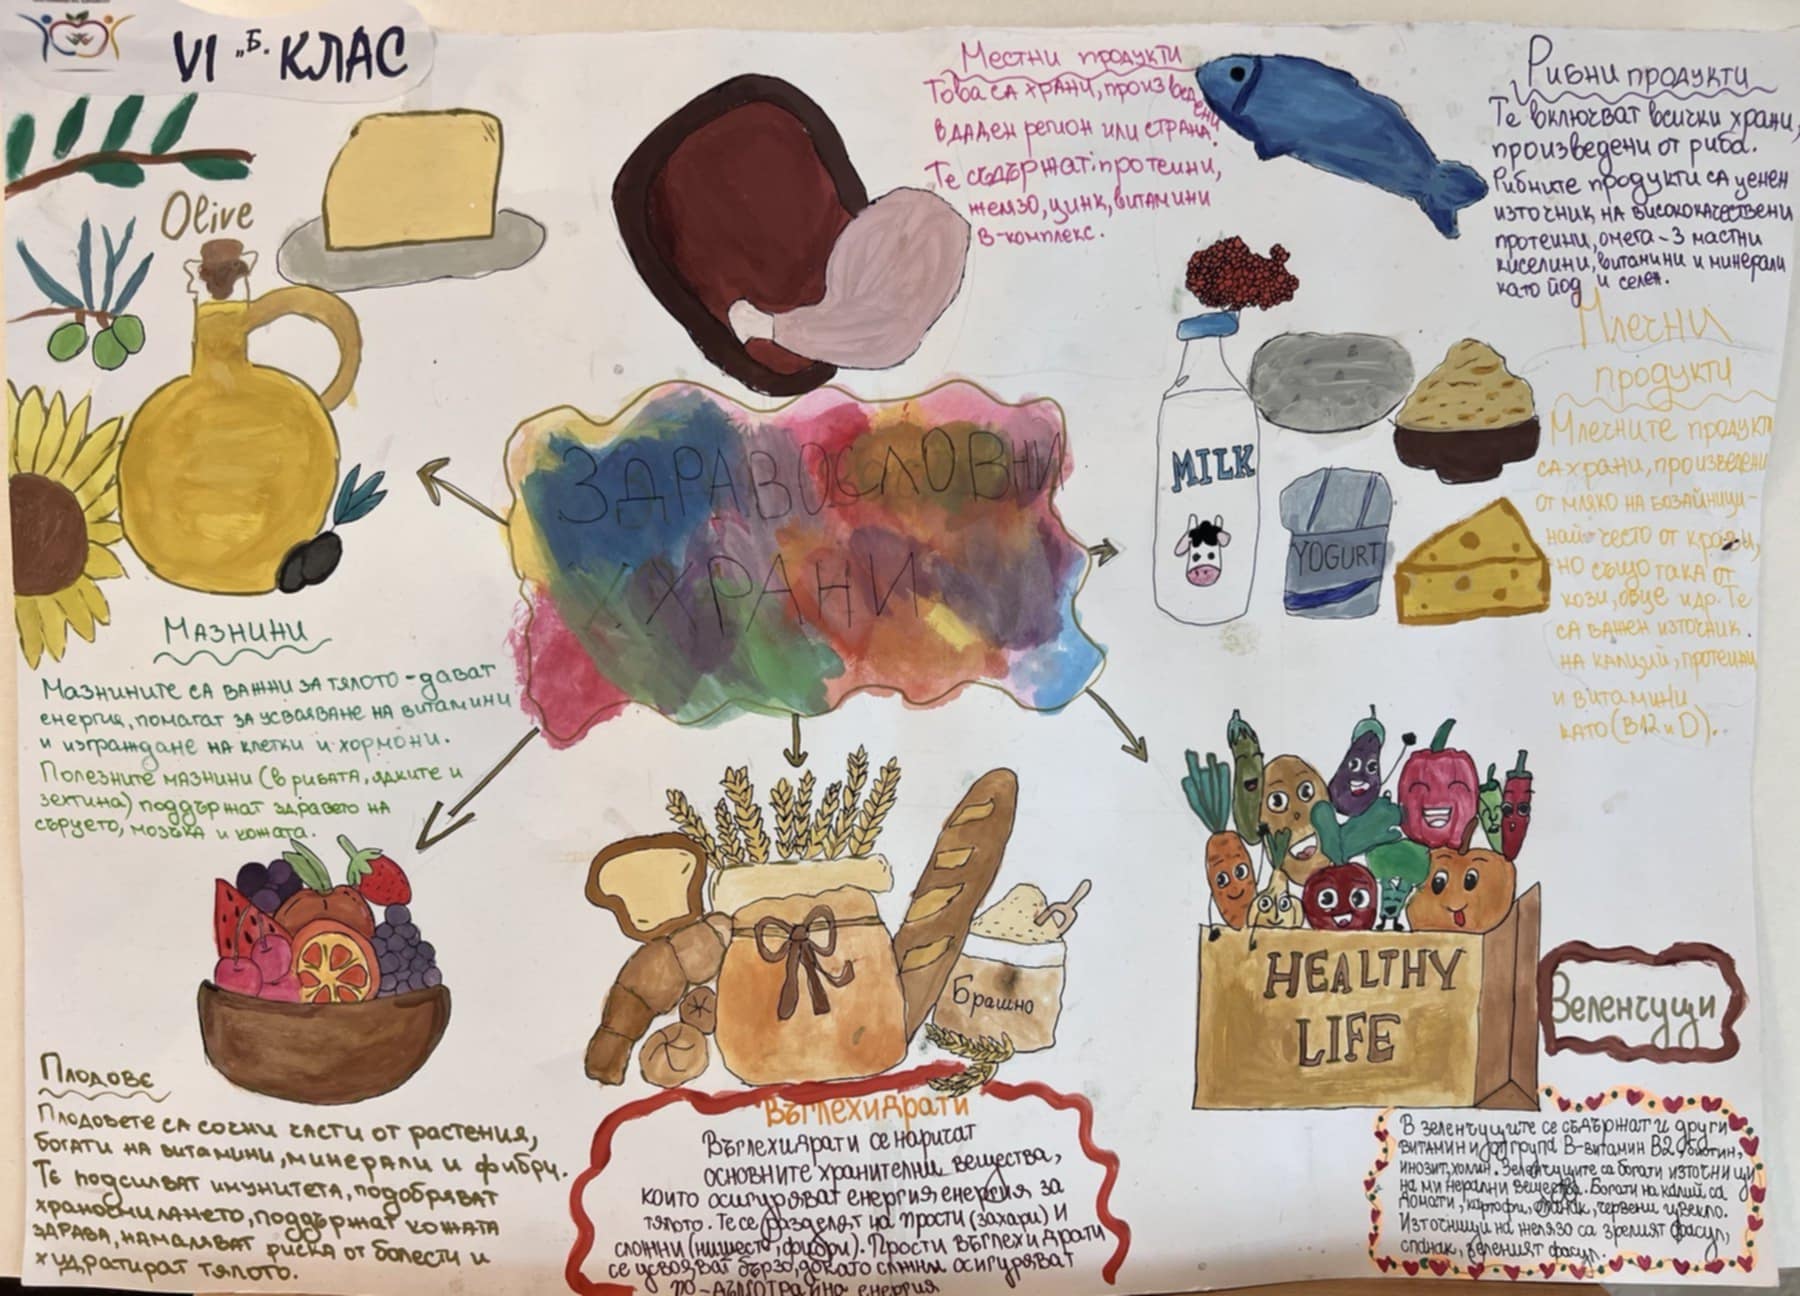 VI „Б“ КЛАС
Olive
Местни продукти
Това са храни, произведени
в даден регион или страна!
Те съдържат: протеини,
жемзо, цинк, витамини
В-комплекс.
Рибни продукти
Те включват всички храни,
произведени от риба.
Рибните продукти са ценен
източник на висококачествени
протеини, омега-3 мастни
киселини, витамини и минерали
като йод и селен.
Млечни
продукти
Млечните продукти
са храни, произведени
от мляко на бозайници-
най-често от крави,
но също така от
кози, овце и др. Те
са важен източник
на калций, протеини
и витамини
като (B12 и D).
MILK
YOGURT
ЗДРАВОСЛОВНИ
ХХРАНИ
Мазнини
Мазнините са важни за тялото - дават
енергия, помагат за усвояване на витамини
и изграждане на клетки и хормони.
Полезните мазнини (в рибата, ядките и
зехтина) поддържат здравето на
сърцето, мозъка и кожата.
Плодове
Плодовете са сочни части от растения,
богати на витамини, минерали и фибри.
Те подсилват имунитета, подобряват
храносмилането, поддържат кожата
здрава, намаляват риска от болести и
хидратират тялото.
Брашно
Въглехидрати
Въглехидрати се наричат
основните хранителни вещества,
които осигуряват енергия енергия за
тялото. Те се разделят на прости (захари) и
сложни (нишесте, фибри). Прости въглехидрати
се усвояват бързо, докато сложни осигуряват
по-дълготрайна енергия
HEALTHY
LIFE
Зеленчуци
В зеленчуците се съдържат и други
витамини от група В-витамин В2, биотин,
инозит, холин. Зеленчуците са богати източници
на минерални вещества. Богати на калий са
домати, картофи, спанак, червено цвекло.
Източници на желязо са зрелият фасул,
спанак, зеленият фасул.